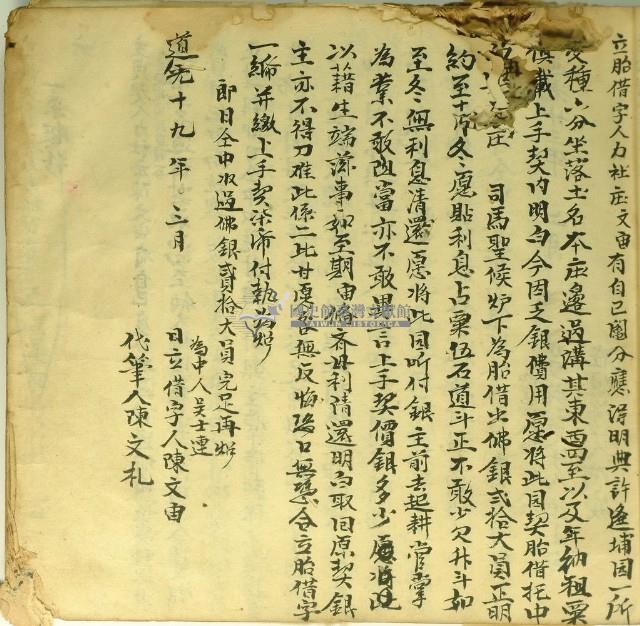 立胎借字人力社庄文由有自己鬮分應得明典許逢埔園一所
受種六分坐落土名本庄邊過溝其東西四至以及年納租粟
俱載上手契内明白今因乏銀費用愿將此園契胎借托中
庄司馬聖候炉下為胎借出佛銀弍拾大員正明
約至十月冬愿貼利息占粟伍石道斗正不敢少欠升斗如
至冬無利息清還愿將此園听付銀主前去起耕官掌
為業不敢阻當亦不敢異言上手契價銀多少愿將此
以藉生端滋事如至期由俻齊母利清還明白取回原契銀
主亦不得刁难此係二比甘愿各無反悔恐口無憑今立胎借字
一紙并繳上手契柒帋付執為炤
即日仝中收過佛銀弍拾大員完足再炤
為中人吳士連
道光十九年三月 日立借字人陳文由
代筆人陳文札
國史館臺灣文獻館
TAIWAN HISTORICA